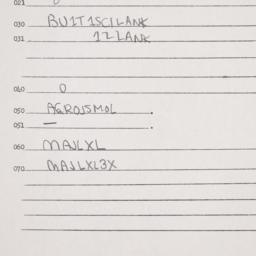 021
030 BUIT1SCILANK
031 1ZLANK
040 0
050 AGROJSMOL .
051 — .
060 MAJLXL
070 MAJLXL3X